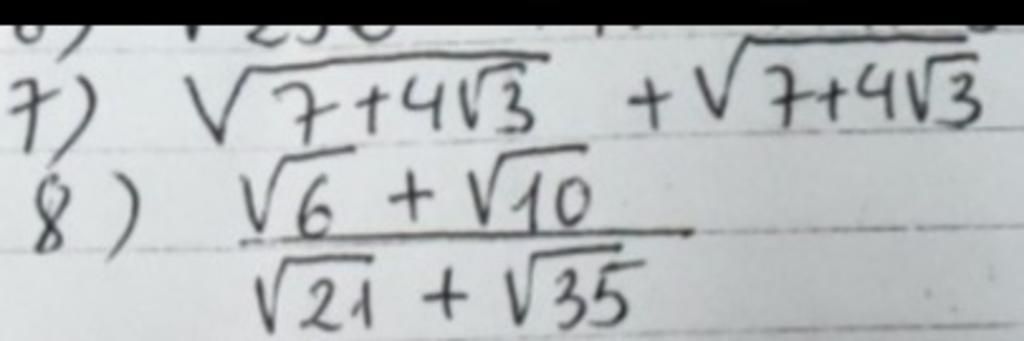 7) √(7+4√3) + √(7+4√3)
8) (√6 + √10)/(√21 + √35)